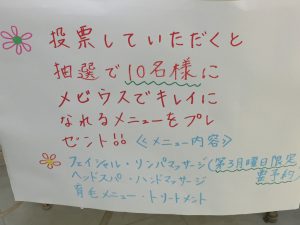 投票していただくと
抽選で10名様に
メビウスでキレイに
なれるメニューをプレ
ゼント!! ≪メニュー内容≫
フェイシャル・リンパマッサージ(第3月曜日限定
要予約)
ヘッドスパ・ハンドマッサージ
育毛メニュー・トリートメント